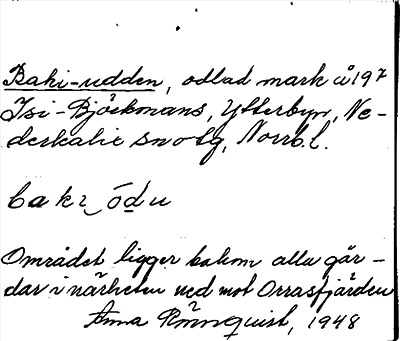 Baki-udden, odlad mark å 19⁷
Isi-Björkmans, Ytterbyn, Ne-
derkalix sn o tg, Norrb. l.
bakı͜ ód̲u
Området ligger bakom alla går-
dar i närheten ned mot Orrasfjärden
Anna Rönnquist, 1948